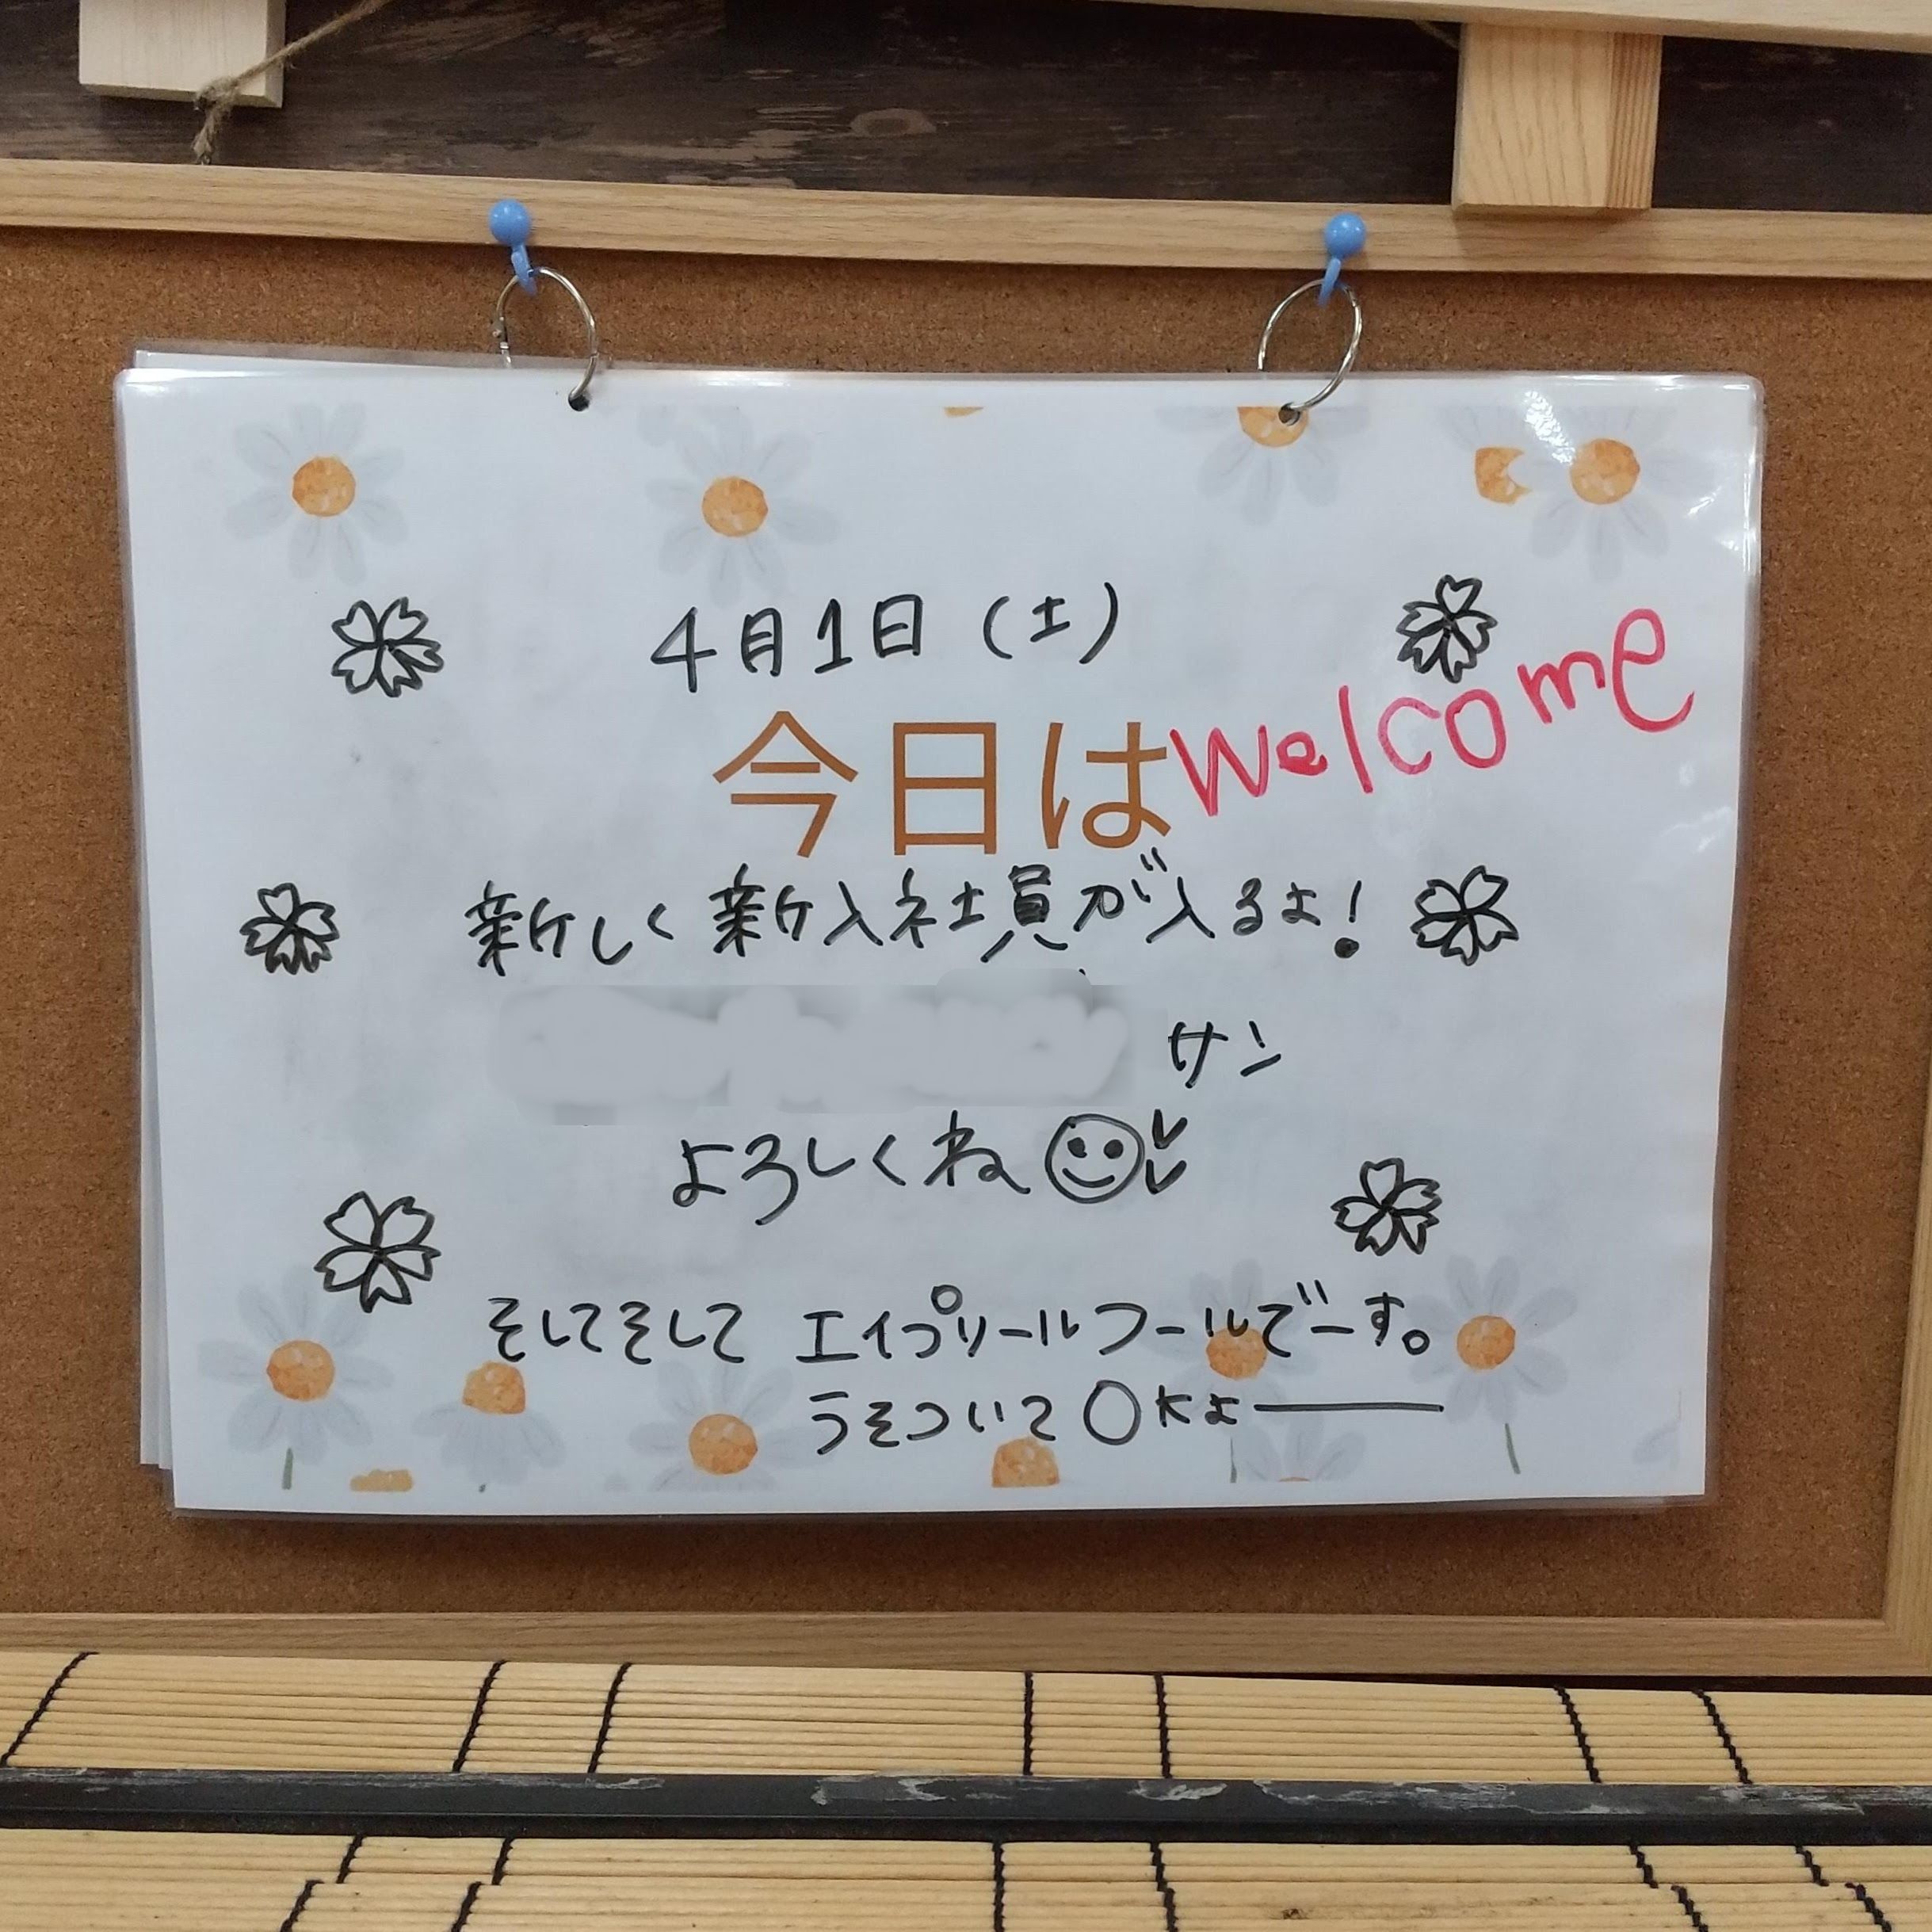 4月1日（土）
今日はWelcome
新しく新入社員が入るよ！
サン
よろしくね
そしてそして エイプリールフールでーす。
うそついてOKよー